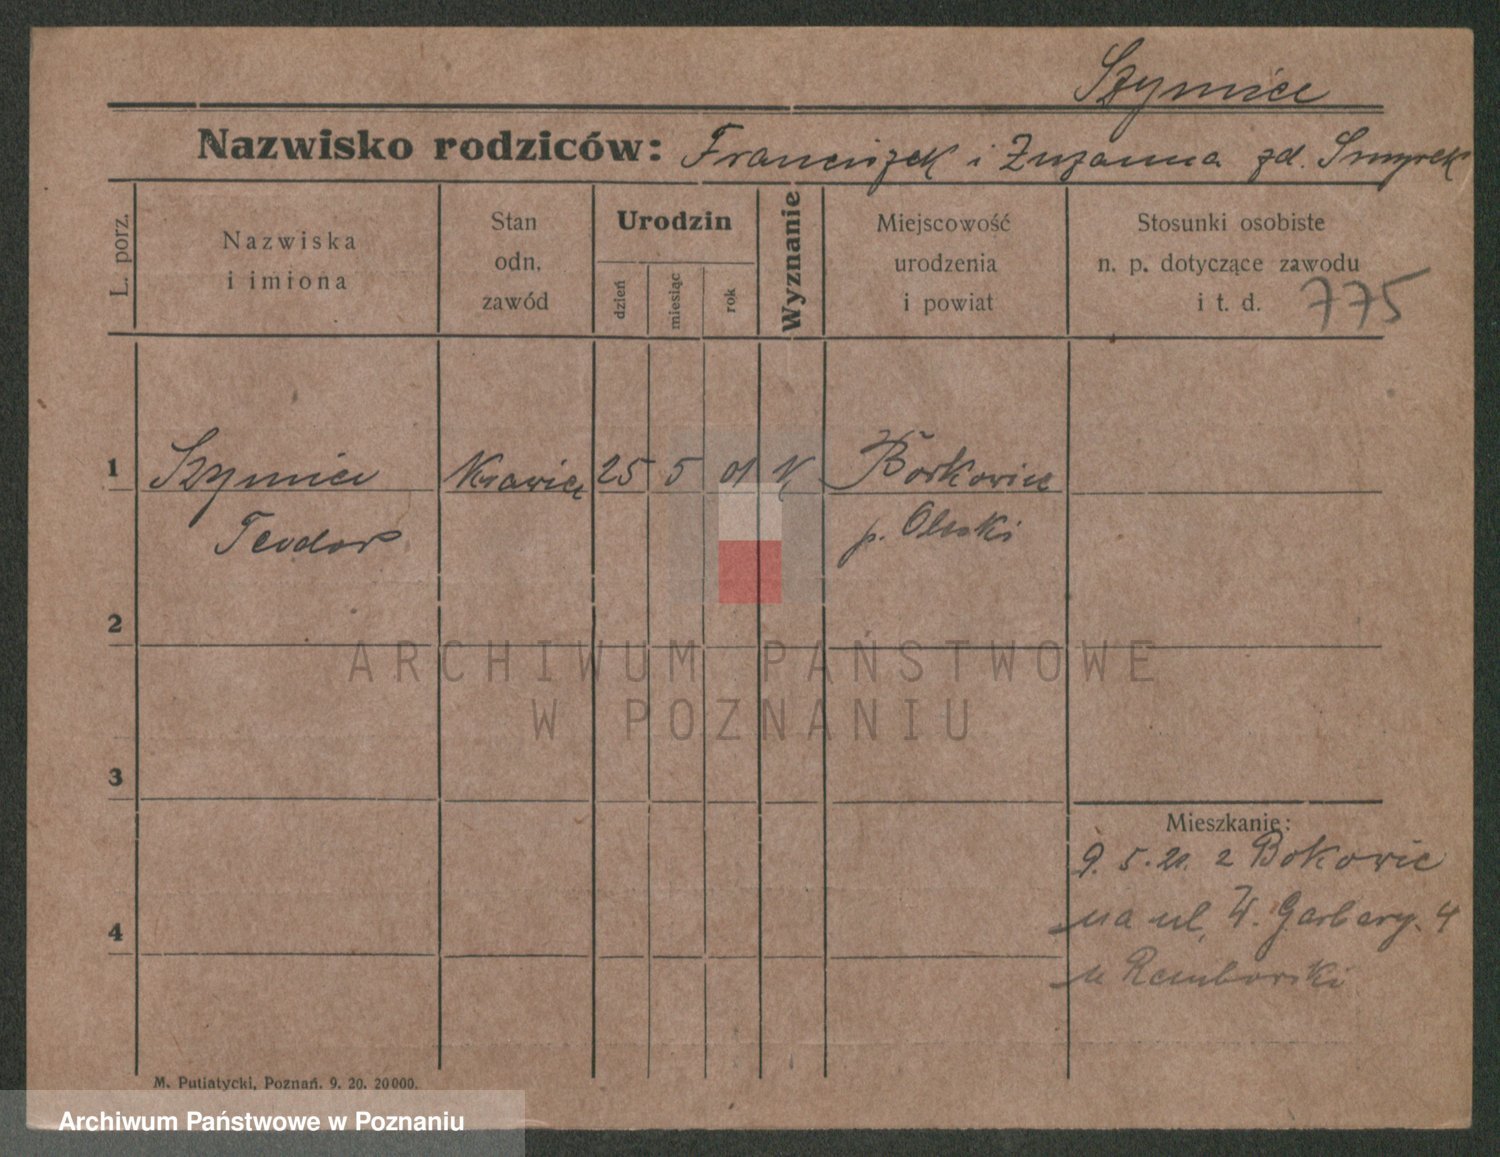 Szymiec
Nazwisko rodziców: Franciszek i Zuzanna zd. Smyrek
L. porz.
Nazwiska
i imiona
Stan
odn.
zawód
Urodzin
dzień
miesiąc
rok
Wyznanie
Miejscowość
urodzenia
i powiat
Stosunki osobiste
n. p. dotyczące zawodu
i t. d. 775
1 Szymiec Krawiec 25 5 01 K Borkowice
Teodor p. Oleski
2
ARCHIWUM PAŃSTWOWE
W POZNANIU
3
Mieszkanie:
9. 5. 21. z Bokowic
na ul. W. Garbary. 4
4
u Remborski
M. Putiatycki, Poznań. 9. 20. 20000.
Archiwum Państwowe w Poznaniu